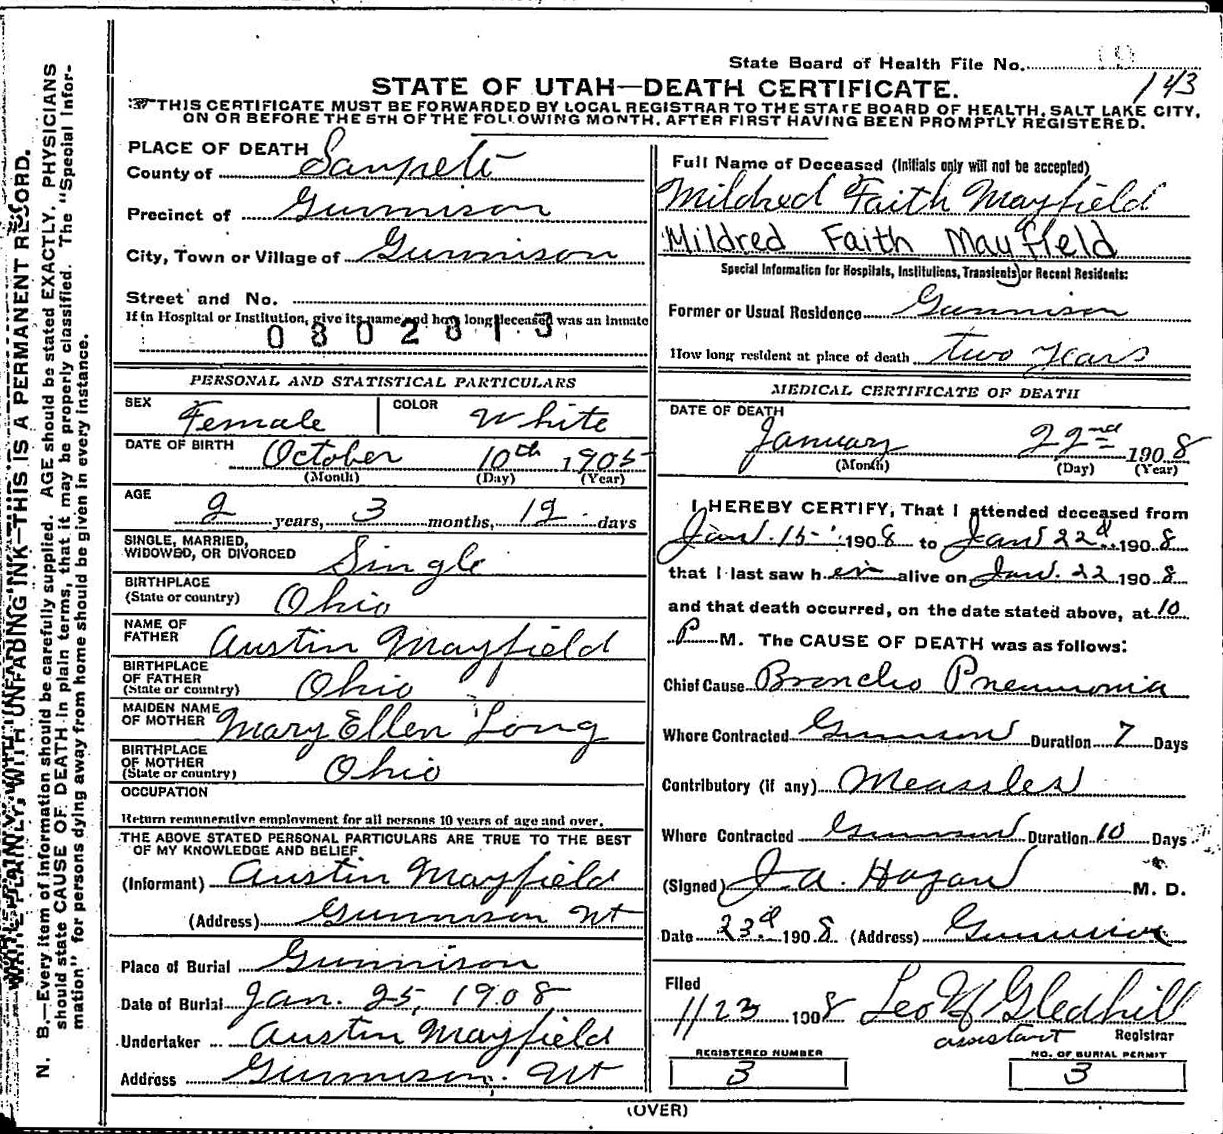 State Board of Health File No.
143
STATE OF UTAH—DEATH CERTIFICATE.
THIS CERTIFICATE MUST BE FORWARDED BY LOCAL REGISTRAR TO THE STATE BOARD OF HEALTH, SALT LAKE CITY,
ON OR BEFORE THE 5TH OF THE FOLLOWING MONTH, AFTER FIRST HAVING BEEN PROMPTLY REGISTERED.
PLACE OF DEATH
County of Sanpete
Precinct of Gunnison
City, Town or Village of Gunnison
Street and No.
If in Hospital or Institution, give its name and how long deceased was an inmate
0302813
PERSONAL AND STATISTICAL PARTICULARS
SEX Female COLOR White
DATE OF BIRTH October 10th 1905
(Month) (Day) (Year)
AGE
2 years, 3 months, 12 days
SINGLE, MARRIED,
WIDOWED, OR DIVORCED Single
BIRTHPLACE
(State or country) Ohio
NAME OF
FATHER Austin Mayfield
BIRTHPLACE
OF FATHER
(State or country) Ohio
MAIDEN NAME
OF MOTHER Mary Ellen Long
BIRTHPLACE
OF MOTHER
(State or country) Ohio
OCCUPATION
Return remunerative employment for all persons 10 years of age and over.
THE ABOVE STATED PERSONAL PARTICULARS ARE TRUE TO THE BEST
OF MY KNOWLEDGE AND BELIEF
(Informant) Austin Mayfield
(Address) Gunnison Ut
Place of Burial Gunnison
Date of Burial Jan. 25, 1908
Undertaker Austin Mayfield
Address Gunnison. Ut
Full Name of Deceased (Initials only will not be accepted)
Mildred Faith Mayfield
Mildred Faith Mayfield
Special Information for Hospitals, Institutions, Transients, or Recent Residents:
Former or Usual Residence Gunnison
How long resident at place of death two years
MEDICAL CERTIFICATE OF DEATH
DATE OF DEATH
January 22nd 1908
(Month) (Day) (Year)
I HEREBY CERTIFY, That I attended deceased from
Jan. 15 1908 to Jan 22d 1908
that I last saw her alive on Jan. 22 1908
and that death occurred, on the date stated above, at 10
P M. The CAUSE OF DEATH was as follows:
Chief Cause Broncho Pneumonia
Where Contracted Gunnison Duration 7 Days
Contributory (if any) Meassles
Where Contracted Gunnison Duration 10 Days
(Signed) J. A. Hagan M. D.
Date 23d 1908 (Address) Gunnison
Filed
1/23 1908 Leo Gledhill
assistant Registrar
REGISTERED NUMBER
3
NO. OF BURIAL PERMIT
3
(OVER)
WRITE PLAINLY, WITH UNFADING INK—THIS IS A PERMANENT RECORD.
N. B.—Every item of information should be carefully supplied. AGE should be stated EXACTLY, PHYSICIANS
should state CAUSE OF DEATH in plain terms, that it may be properly classified. The "Special Infor-
mation" for persons dying away from home should be given in every instance.